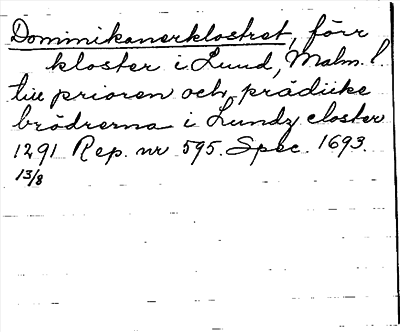 Dominikanerklostret, förr
kloster i Lund, Malm. l.
till prioren och prädicke
brödrerna i Lundz closter
1291 Rep. nr 595. Spec. 1693.
13/8